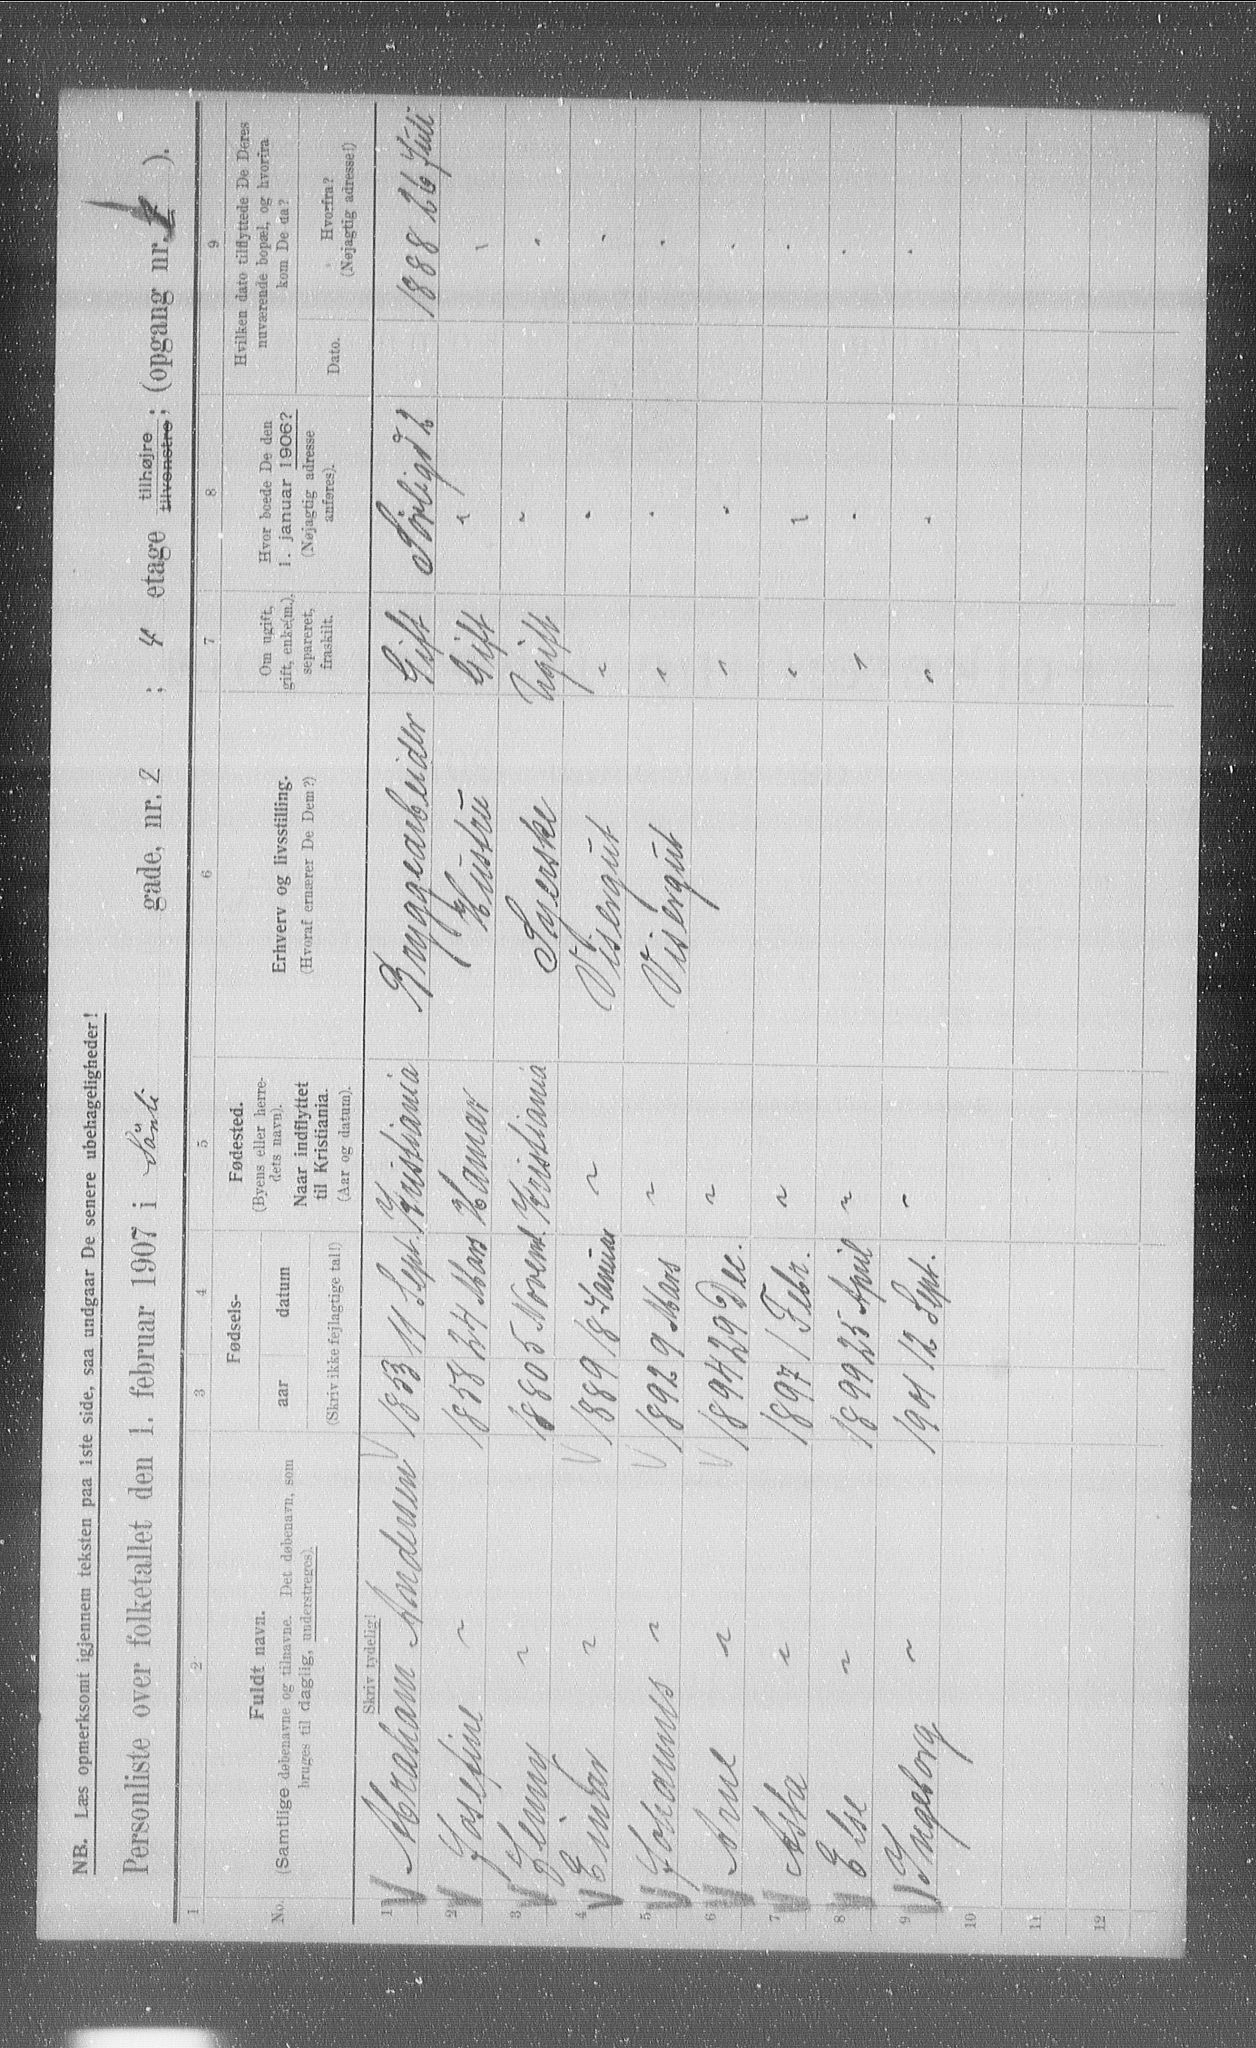 NB. Læs opmerksomt igjennem teksten paa 1ste side, saa undgaar De senere ubehageligheder!
Personliste over folketallet den 1. februar 1907 i Sānli gade, nr. 2 ; 4 etage tilhøjre tilvenstre; (opgang nr. ).
1 2 3 4 5 6 7 8 9
No. Fuldt navn. (Samtlige døbenavne og tilnavne. Det døbenavn, som bruges til daglig, understreges).
Fødsels- aar datum (Skriv ikke fejlagtige tal!)
Fødested. (Byens eller herredets navn). Naar indflyttet til Kristiania. (Aar og datum).
Erhverv og livsstilling. (Hvoraf ernærer De Dem?)
Om ugift, gift, enke(m.), separeret, fraskilt.
Hvor boede De den 1. januar 1906? (Nøjagtig adresse anføres).
Hvilken dato tilflyttede De Deres nuværende bopæl, og hvorfra kom De da?
Dato. Hvorfra? (Nøjagtig adresse!)
Skriv tydelig!
1 Abraham Andersen 1853 11 Sept. Kristiania Bryggearbeider Gift Sörligd 2 1888 26 Juli
2 Josefine " 1858 24 Mars Hamar Hustru Gift " "
3 Jenny " 1880 5 Novemb. Kristiania Syerske Ugift " "
4 Einar " 1889 18 Januar " Visergut " " "
5 Johannes " 1892 9 Mars " Visergut " " "
6 Arne " 1894 29 Dec. " " " "
7 Asta " 1897 1 Febr. " " " "
8 Else " 1899 25 April " " " "
9 Ingeborg " 1901 12 Sept. " " " "
10
11
12